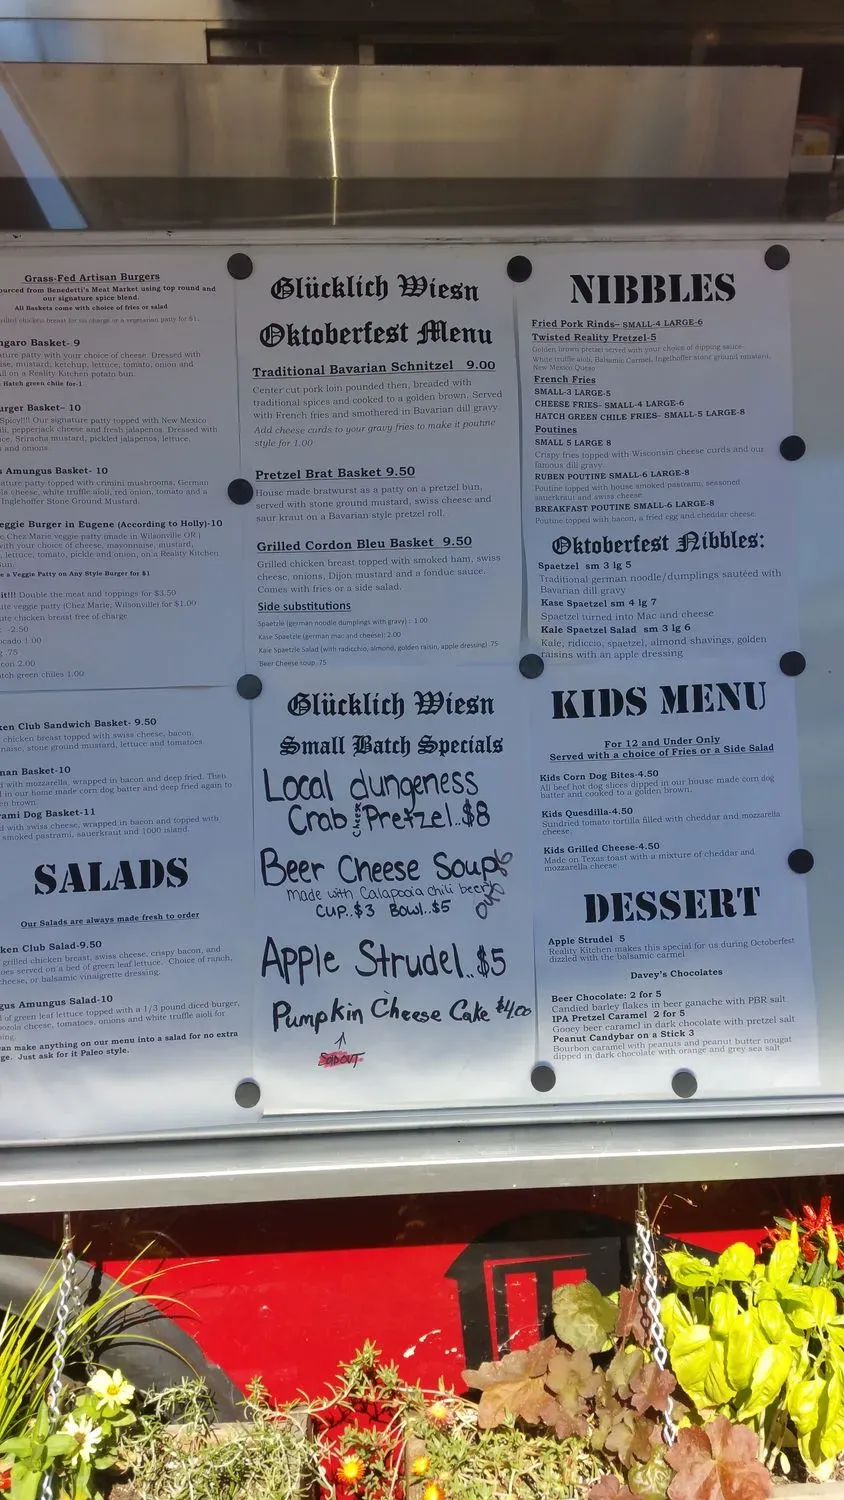 Grass-Fed Artisan Burgers
ourced from Benedetti's Meat Market using top round and
our signature spice blend.
All Baskets come with choice of fries or salad
grilled chicken breast for no charge or a vegetarian patty for $1.
ngaro Basket- 9
ature patty with your choice of cheese. Dressed with
ise, mustard, ketchup, lettuce, tomato, onion and
ll on a Reality Kitchen potato bun.
Hatch green chile for-1
urger Basket- 10
Spicy!!!! Our signature patty topped with New Mexico
li, pepperjack cheese and fresh jalapenos. Dressed with
ce, Sriracha mustard, pickled jalapenos, lettuce,
and onions.
s Amungus Basket- 10
ature patty topped with crimini mushrooms, German
la cheese, white truffle aioli, red onion, tomato and a
Inglehoffer Stone Ground Mustard.
eggie Burger in Eugene (According to Holly)-10
Chez Marie veggie patty (made in Wilsonville OR.)
with your choice of cheese, mayonnaise, mustard,
, lettuce, tomato, pickle and onion, on a Reality Kitchen
un.
e a Veggie Patty on Any Style Burger for $1
it!!! Double the meat and toppings for $3.50
ute veggie patty (Chez Marie, Wilsonville) for $1.00
ute chicken breast free of charge
: -2.50
ocado 1.00
g .75
con 2.00
atch green chiles 1.00
ken Club Sandwich Basket- 9.50
chicken breast topped with swiss cheese, bacon,
naise, stone ground mustard, lettuce and tomatoes
man Basket-10
d with mozzarella, wrapped in bacon and deep fried. Then
d in our home made corn dog batter and deep fried again to
en brown.
rami Dog Basket-11
d with swiss cheese, wrapped in bacon and topped with
smoked pastrami, sauerkraut and 1000 island.
SALADS
Our Salads are always made fresh to order
ken Club Salad-9.50
grilled chicken breast, swiss cheese, crispy bacon, and
oes served on a bed of green leaf lettuce. Choice of ranch,
cheese, or balsamic vinaigrette dressing.
gus Amungus Salad-10
d of green leaf lettuce topped with a 1/3 pound diced burger,
ozola cheese, tomatoes, onions and white truffle aioli for
sing.
an make anything on our menu into a salad for no extra
ge. Just ask for it Paleo style.
Glücklich Wiesn
Oktoberfest Menu
Traditional Bavarian Schnitzel 9.00
Center cut pork loin pounded then, breaded with
traditional spices and cooked to a golden brown. Served
with French fries and smothered in Bavarian dill gravy
Add cheese curds to your gravy fries to make it poutine
style for 1.00
Pretzel Brat Basket 9.50
House made bratwurst as a patty on a pretzel bun,
served with stone ground mustard, swiss cheese and
saur kraut on a Bavarian style pretzel roll.
Grilled Cordon Bleu Basket 9.50
Grilled chicken breast topped with smoked ham, swiss
cheese, onions, Dijon mustard and a fondue sauce.
Comes with fries or a side salad.
Side substitutions
Spaetzle (german noodle dumplings with gravy) : 1.00
Kase Spaetzle (german mac and cheese): 2.00
Kale Spaetzle Salad (with radicchio, almond, golden raisin, apple dressing) .75
Beer Cheese soup .75
Glücklich Wiesn
Small Batch Specials
Local dungeness
Crab Cheese Pretzel..$8
Beer Cheese Soup
made with Calapooia chili beer
CUP..$3 Bowl..$5
Apple Strudel..$5
Pumpkin Cheese Cake $4.00
NIBBLES
Fried Pork Rinds– SMALL-4 LARGE-6
Twisted Reality Pretzel-5
Golden brown pretzel served with your choice of dipping sauce.
White truffle aioli, Balsamic Carmel, Ingelhoffer stone ground mustard,
New Mexico Queso
French Fries
SMALL-3 LARGE-5
CHEESE FRIES– SMALL-4 LARGE-6
HATCH GREEN CHILE FRIES– SMALL-5 LARGE-8
Poutines
SMALL 5 LARGE 8
Crispy fries topped with Wisconsin cheese curds and our
famous dill gravy.
RUBEN POUTINE SMALL-6 LARGE-8
Poutine topped with house smoked pastrami, seasoned
sauerkraut and swiss cheese
BREAKFAST POUTINE SMALL-6 LARGE-8
Poutine topped with bacon, a fried egg and cheddar cheese.
Oktoberfest Nibbles:
Spaetzel sm 3 lg 5
Traditional german noodle/dumplings sautéed with
Bavarian dill gravy
Kase Spaetzel sm 4 lg 7
Spaetzel turned into Mac and cheese
Kale Spaetzel Salad sm 3 lg 6
Kale, ridiccio, spaetzel, almond shavings, golden
raisins with an apple dressing
KIDS MENU
For 12 and Under Only
Served with a choice of Fries or a Side Salad
Kids Corn Dog Bites-4.50
All beef hot dog slices dipped in our house made corn dog
batter and cooked to a golden brown.
Kids Quesdilla-4.50
Sundried tomato tortilla filled with cheddar and mozzarella
cheese.
Kids Grilled Cheese-4.50
Made on Texas toast with a mixture of cheddar and
mozzarella cheese.
DESSERT
Apple Strudel 5
Reality Kitchen makes this special for us during Octoberfest
dizzled with the balsamic carmel
Davey's Chocolates
Beer Chocolate: 2 for 5
Candied barley flakes in beer ganache with PBR salt
IPA Pretzel Caramel 2 for 5
Gooey beer caramel in dark chocolate with pretzel salt
Peanut Candybar on a Stick 3
Bourbon caramel with peanuts and peanut butter nougat
dipped in dark chocolate with orange and grey sea salt